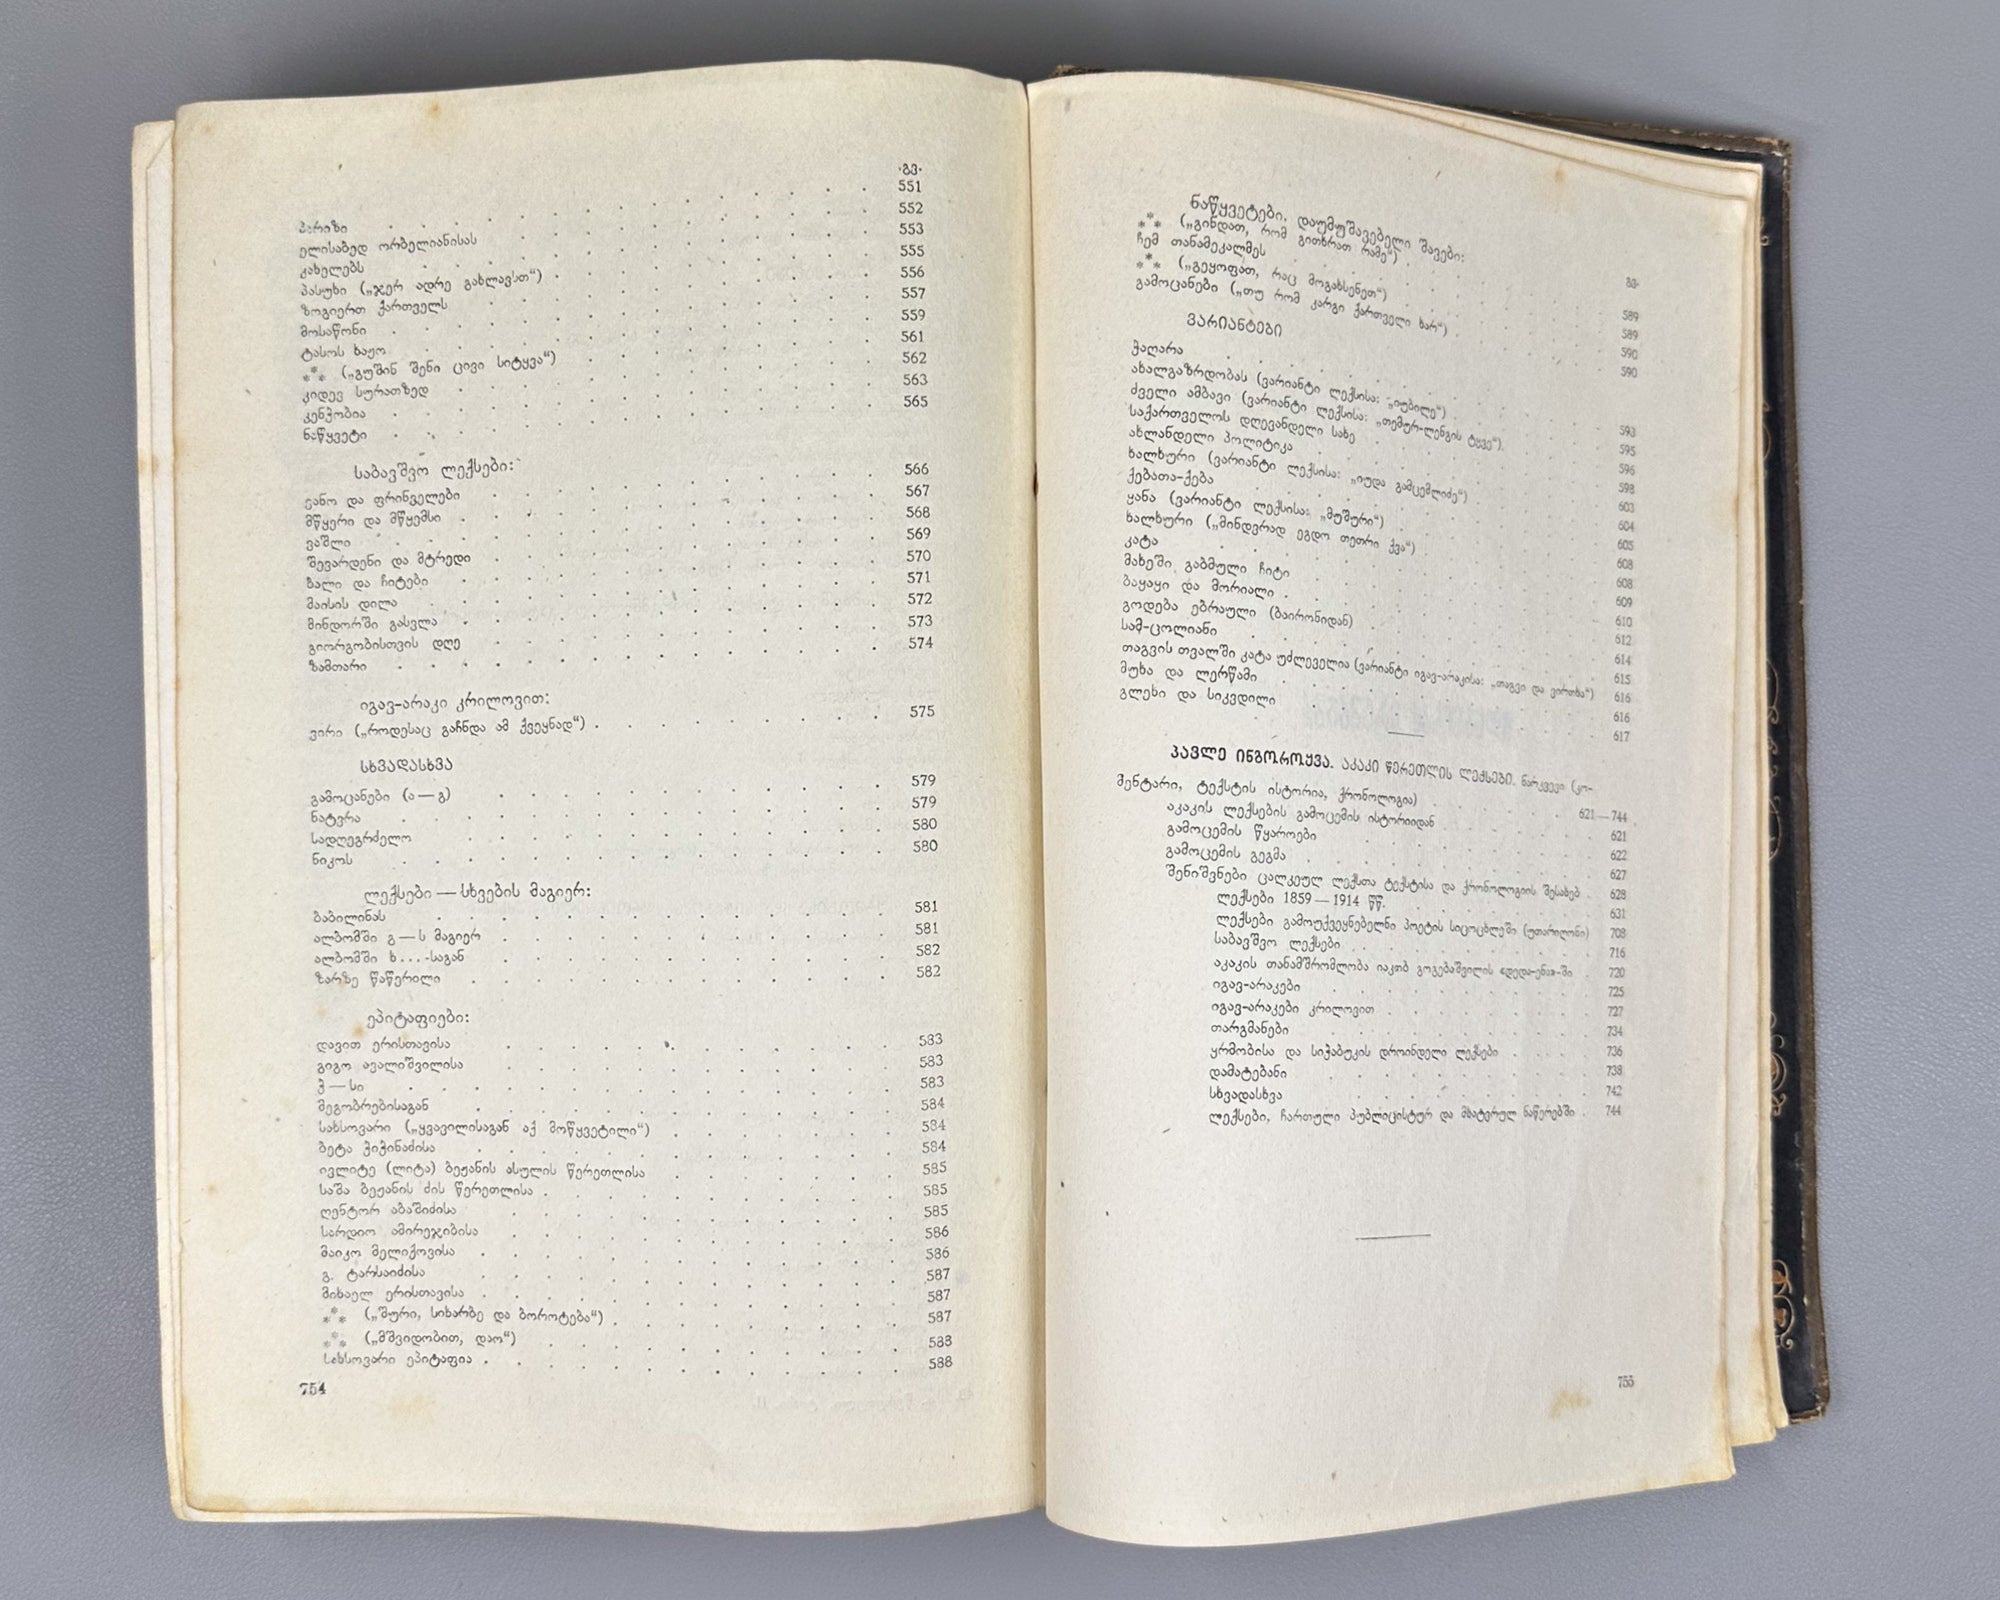 გვ.
პარიზი 551
ელისაბედ ორბელიანისას 552
კახელებს 553
პასუხი („ჯერ ადრე გახლავსთ“) 555
ზოგიერთ ქართველს 556
მოსაწონი 557
ტასოს ხაჟო 559
*** („გუშინ შენი ცივი სიტყვა“) 561
კიდევ სურათზედ 562
კენჭობია 563
ნაწყვეტი 565
საბავშვო ლექსები:
ვანო და ფრინველები 566
მწყერი და მწყემსი 567
ვაშლი 568
შევარდენი და მტრედი 569
ზალი და ჩიტები 570
მაისის დილა 571
მინდორში გასვლა 572
გიორგობისთვის დღე 573
ზამთარი 574
იგავ-არაკი კრილოვით:
ვირი („როდესაც გაჩნდა ამ ქვეყნად“) 575
სხვადასხვა
გამოცანები (ა — გ) 579
ნატვრა 579
სადღეგრძელო 580
ნიკოს 580
ლექსები — სხვების მაგიერ:
ბაბილინას 581
ალბომში გ — ს მაგიერ 581
ალბომში ხ...-საგან 582
ზარზე წაწერილი 582
ეპიტაფიები:
დავით ერისთავისა 583
გიგო ავალიშვილისა 583
ჭ — სი 583
მეგობრებისაგან 584
სახსოვარი („ყვავილისაგან აქ მოწყვეტილი“) 584
ბეტა ჭიჭინაძისა 584
ივლიტე (ლიტა) ბეჟანის ასულის წერეთლისა 585
საშა ბეჟანის ძის წერეთლისა 585
ღენტორ აბაშიძისა 585
სარდიო ამირეჯიბისა 586
მაიკო მელიქოვისა 586
გ. ტარსაიძისა 587
მიხაელ ერისთავისა 587
*** („შური, სიხარბე და ბოროტება“) 587
*** („მშვიდობით, დაო“) 588
სახსოვარი ეპიტაფია 588
754
ნაწყვეტები, დაუმუშავებელი შავები:
გვ.
*** („გინდათ, რომ გითხრათ რამე“) 589
ჩემ თანამეკალმეს 589
*** („გეყოფათ, რაც მოგახსენეთ“) 590
გამოცანები („თუ რომ კარგი ქართველი ხარ“) 590
ვარიანტები
ჭაღარა 593
ახალგაზრდობას (ვარიანტი ლექსისა: „იუბილე“) 595
ძველი ამბავი (ვარიანტი ლექსისა: „თემურ-ლენგის ტყვე“) 596
საქართველოს დღევანდელი სახე 598
ახლანდელი პოლიტიკა 603
ხალხური (ვარიანტი ლექსისა: „იუდა გამცემლიძე“) 604
ქებათა-ქება 605
ყანა (ვარიანტი ლექსისა: „მუშური“) 608
ხალხური („მინდვრად ეგდო თეთრი ქვა“) 608
კატა 609
მახეში გაბმული ჩიტი 610
ბაყაყი და მორიალი 612
გოდება ებრაული (ბაირონიდან) 614
სამ-ცოლიანი 615
თაგვის თვალში კატა უძლეველია (ვარიანტი იგავ-არაკისა: „თაგვი და ვირთხა“) 616
მუხა და ლერწამი 616
გლეხი და სიკვდილი 617
პავლე ინგოროყვა. აკაკი წერეთლის ლექსები. ნარკვევი (კო-
მენტარი, ტექსტის ისტორია, ქრონოლოგია) 621—744
აკაკის ლექსების გამოცემის ისტორიიდან 621
გამოცემის წყაროები 622
გამოცემის გეგმა 627
შენიშვნები ცალკეულ ლექსთა ტექსტისა და ქრონოლოგიის შესახებ 628
ლექსები 1859 — 1914 წწ. 631
ლექსები გამოუქვეყნებელნი პოეტის სიცოცხლეში (უთარიღონი) 708
საბავშვო ლექსები 716
აკაკის თანამშრომლობა იაკობ გოგებაშვილის «დედა-ენა»-ში 720
იგავ-არაკები 725
იგავ-არაკები კრილოვით 727
თარგმანები 734
ყრმობისა და სიჭაბუკის დროინდელი ლექსები 736
დამატებანი 738
სხვადასხვა 742
ლექსები, ჩართული პუბლიცისტურ და მხატვრულ ნაწერებში 744
755